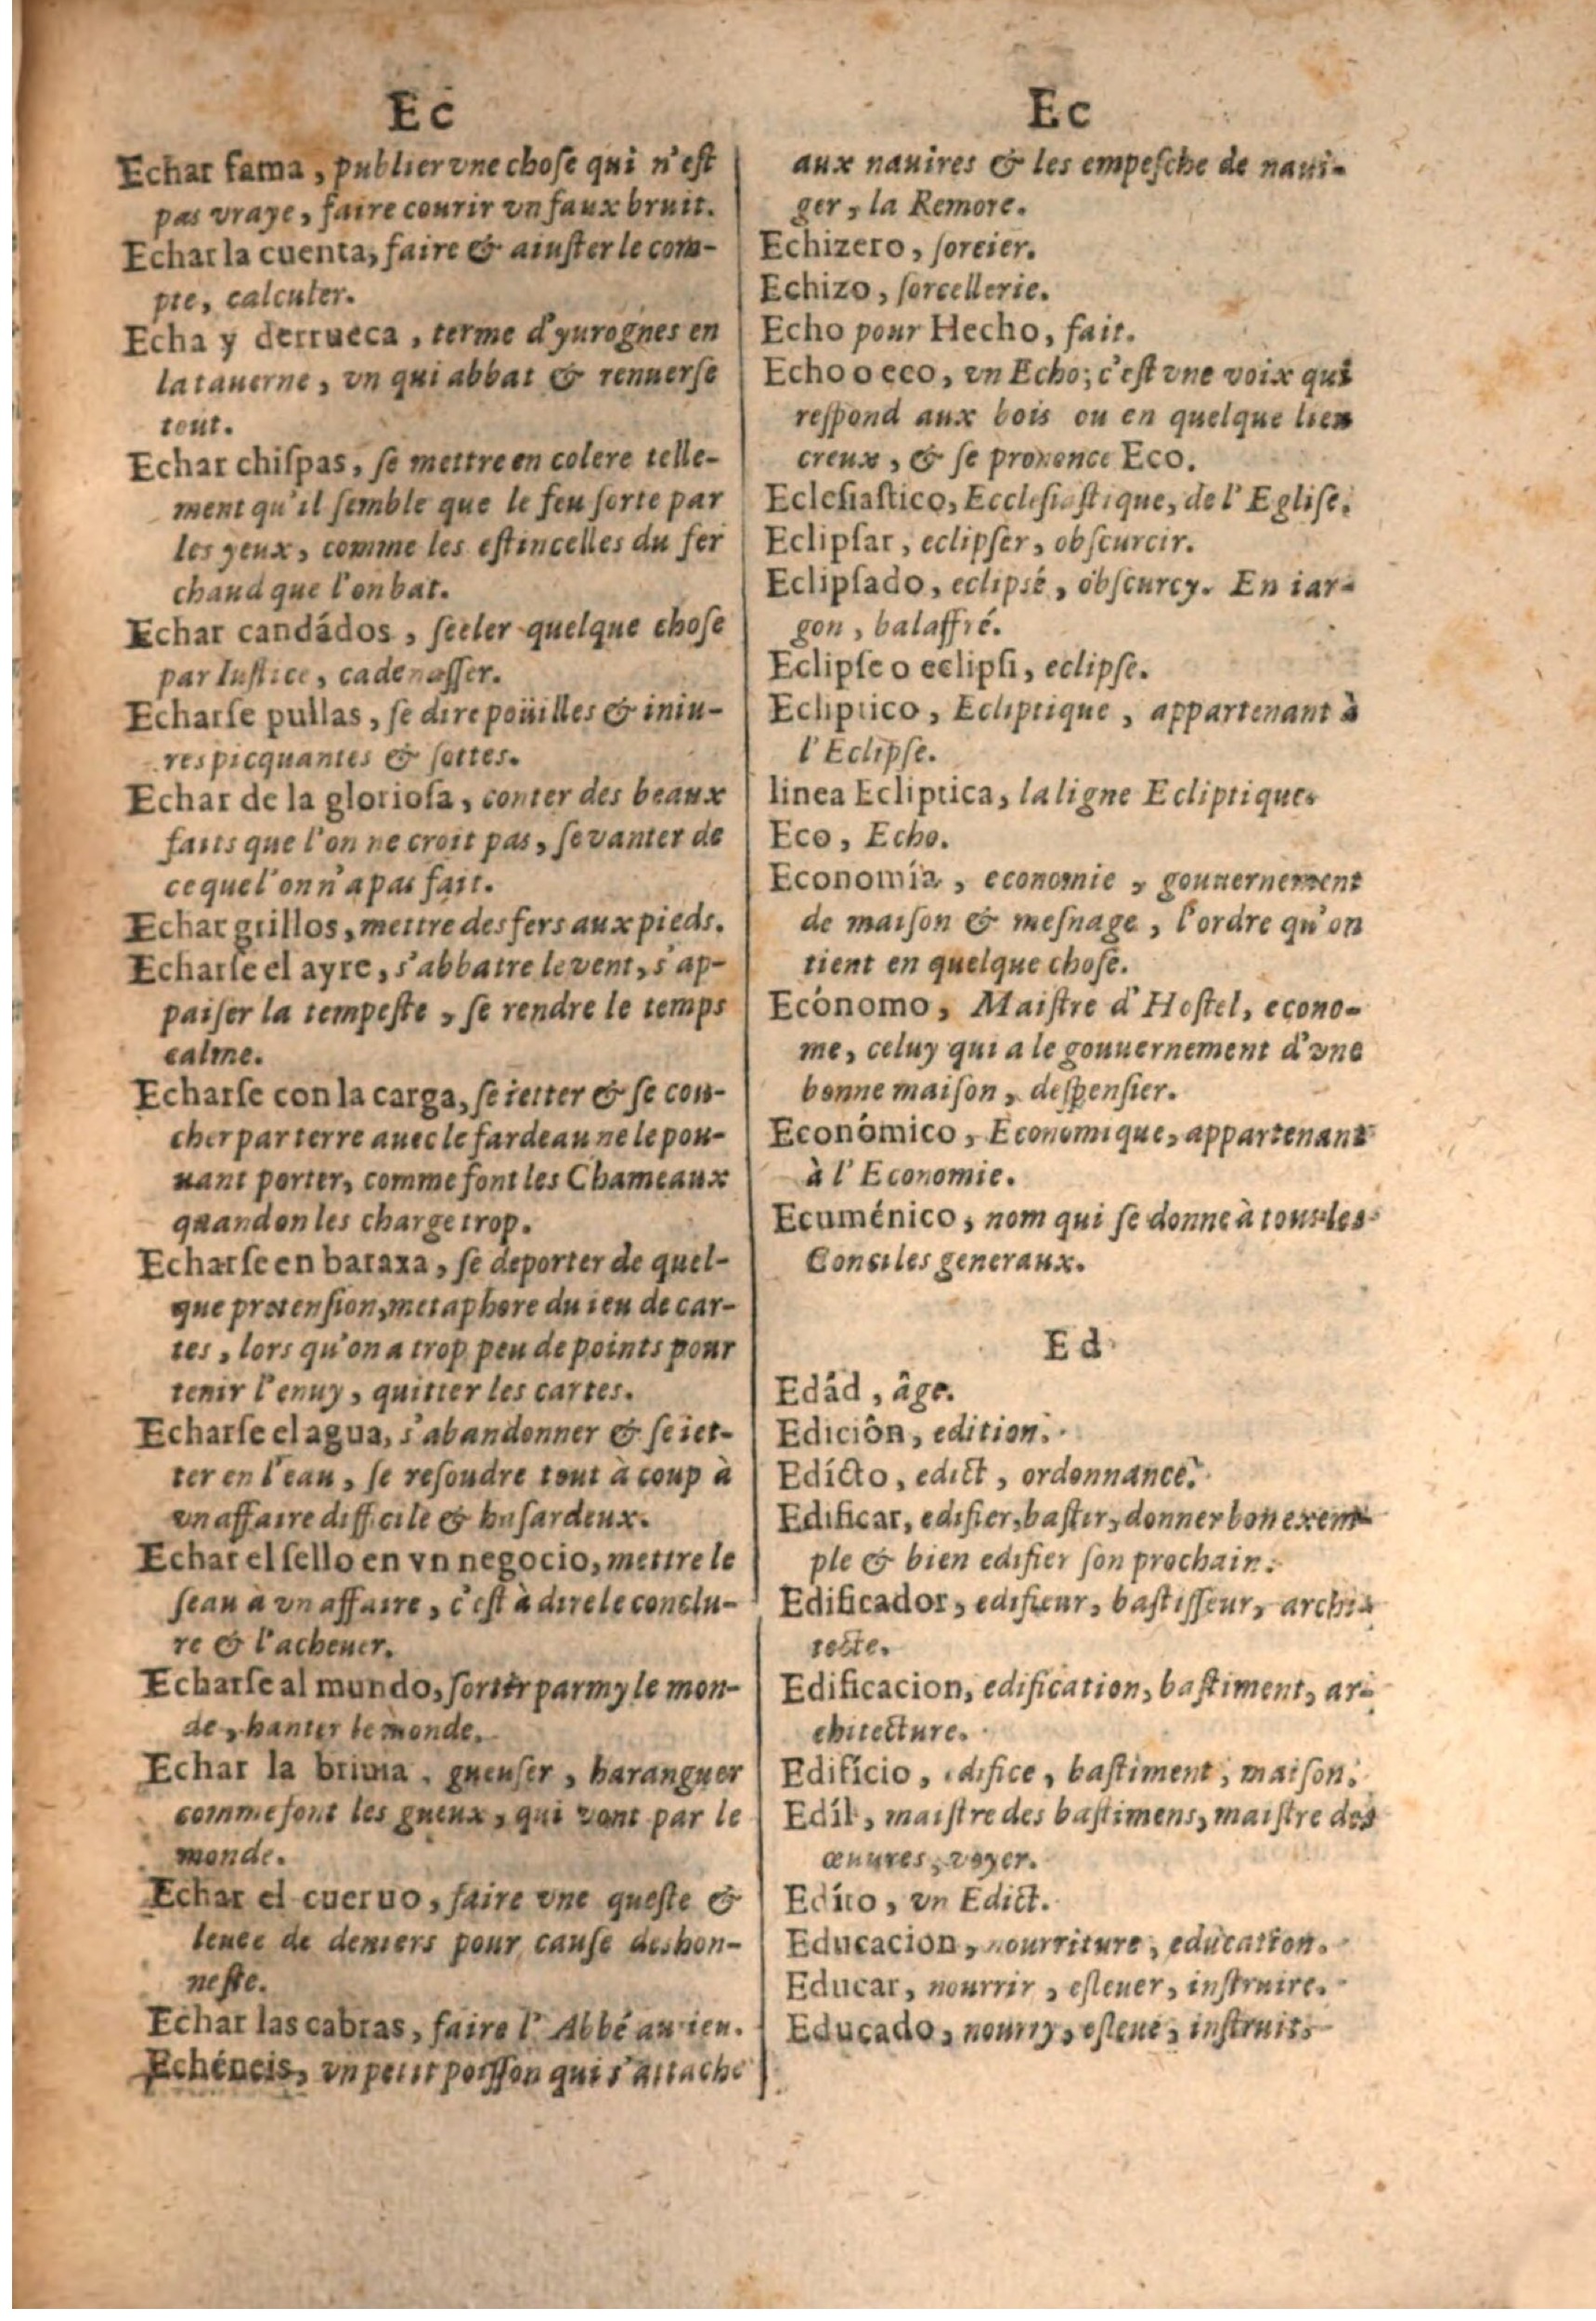 Ec
Echar fama, publier vne choſe qui n'eſt
pas vraye, faire courir vn faux bruit.
Echar la cuenta, faire & aiuſter le com-
pte, calculer.
Echa y derrueca, terme d'yurognes en
la tauerne, vn qui abbat & renuerſe
tout.
Echar chiſpas, ſe mettre en colere telle-
ment qu'il ſemble que le feu ſorte par
les yeux, comme les eſtincelles du fer
chaud que l'on bat.
Echar candádos, ſeeler quelque choſe
par Iuſtice, cadenaſſer.
Echarſe pullas, ſe dire poüilles & iniu-
res picquantes & ſottes.
Echar de la glorioſa, conter des beaux
faits que l'on ne croit pas, ſe vanter de
ce que l'on n'a pas fait.
Echar grillos, mettre des fers aux pieds.
Echarſe el ayre, s'abbatre le vent, s'ap-
paiſer la tempeſte, ſe rendre le temps
calme.
Echarſe con la carga, ſe ietter & ſe cou-
cher par terre auec le fardeau ne le pou-
uant porter, comme font les Chameaux
quand on les charge trop.
Echarſe en baraxa, ſe deporter de quel-
que pretenſion, metaphore du ieu de car-
tes, lors qu'on a trop peu de points pour
tenir l'enuy, quitter les cartes.
Echarſe el agua, s'abandonner & ſe iet-
ter en l'eau, ſe reſoudre tout à coup à
vn affaire difficile & haſardeux.
Echar el ſello en vn negocio, mettre le
ſeau à vn affaire, c'eſt à dire le conclu-
re & l'acheuer.
Echarſe al mundo, ſortir parmy le mon-
de, hanter le monde.
Echar la briuia, gueuſer, haranguer
comme font les gueux, qui vont par le
monde.
Echar el cueruo, faire vne queſte &
leuée de deniers pour cauſe deshon-
neſte.
Echar las cabras, faire l'Abbé au ieu.
Echéneis, vn petit poiſſon qui s'attache
Ec
aux nauires & les empeſche de naui-
ger, la Remore.
Echizero, ſorcier.
Echizo, ſorcellerie.
Echo pour Hecho, fait.
Echo o eco, vn Echo; c'eſt vne voix qui
reſpond aux bois ou en quelque lieu
creux, & ſe prononce Eco.
Ecleſiaſtico, Eccleſiaſtique, de l'Egliſe.
Eclipſar, eclipſer, obſcurcir.
Eclipſado, eclipsé, obſcurcy. En iar-
gon, balaffré.
Eclipſe o eclipſi, eclipſe.
Ecliptico, Ecliptique, appartenant à
l'Eclipſe.
linea Ecliptica, la ligne Ecliptique.
Eco, Echo.
Economía, economie, gouuernement
de maiſon & meſnage, l'ordre qu'on
tient en quelque choſe.
Ecónomo, Maiſtre d'Hoſtel, econo-
me, celuy qui a le gouuernement d'vne
bonne maiſon, deſpenſier.
Económico, Economique, appartenant
à l'Economie.
Ecuménico, nom qui ſe donne à tous les
Conciles generaux.
Ed
Edâd, âge.
Ediciôn, edition.
Edícto, edict, ordonnance.
Edificar, edifier, baſtir, donner bon exem-
ple & bien edifier ſon prochain.
Edificador, edifieur, baſtiſſeur, archi-
tecte.
Edificacion, edification, baſtiment, ar-
chitecture.
Edifício, edifice, baſtiment, maiſon.
Edíl, maiſtre des baſtimens, maiſtre des
œuures, voyer.
Edíto, vn Edict.
Educacion, nourriture, education.
Educar, nourrir, eſleuer, inſtruire.
Educado, nourry, eſleué, inſtruit.